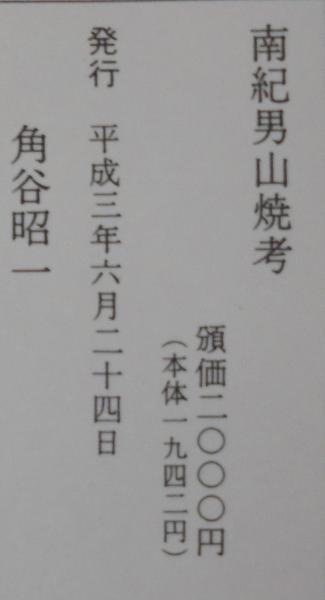 南紀男山焼考
頒価二〇〇〇円
（本体一九四二円）
発行　平成三年六月二十四日
角谷昭一